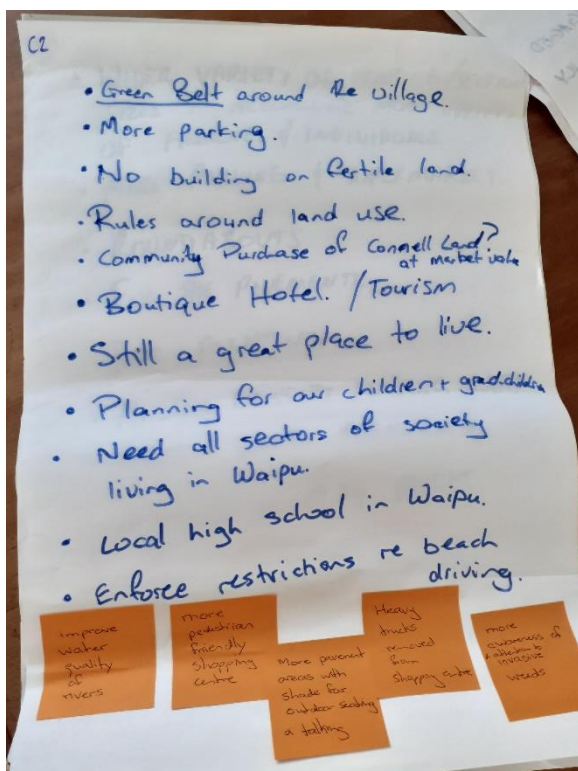 C2
• Green Belt around the village.
• More parking.
• No building on fertile land.
• Rules around land use.
• Community Purchase of Connell Land?
at market value
• Boutique Hotel. / Tourism
• Still a great place to live.
• Planning for our children + grandchildren
• Need all sectors of society
living in Waipu.
• Local high school in Waipu.
• Enforce restrictions re beach
driving.
improve
water
quality
of
rivers
more
pedestrian
friendly
shopping
centre
More pavement
areas with
shade for
outdoor seating
a talking
Heavy
trucks
removed
from
shopping centre
more
awareness of
invasive
weeds